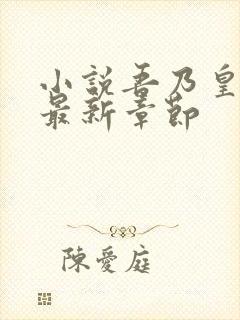 小說吾乃皇
最新章節
陳愛庭